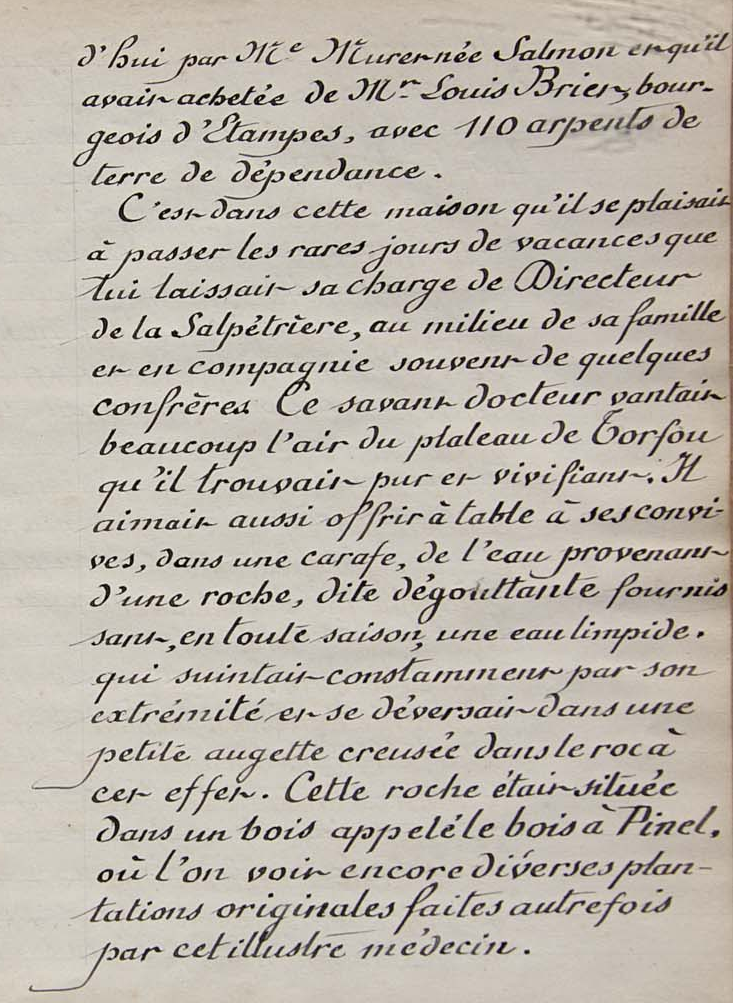 d'hui par Me Murernée Salmon et qu'il
avait achetée de Mr Louis Brier, bour-
geois d'Etampes, avec 110 arpents de
terre de dépendance.
C'est dans cette maison qu'il se plaisait
à passer les rares jours de vacances que
lui laissait sa charge de Directeur
de la Salpétrière, au milieu de sa famille
et en compagnie souvent de quelques
confrères. Ce savant docteur vantait
beaucoup l'air du plateau de Torfou
qu'il trouvait pur et vivifiant. Il
aimait aussi offrir à table à ses convi-
ves, dans une carafe, de l'eau provenant
d'une roche, dite dégouttante fournis
sant, en toute saison, une eau limpide.
qui suintait constamment par son
extrémité et se déversait dans une
petite augette creusée dans le roc à
cet effet. Cette roche était située
dans un bois appelé le bois à Pinel,
où l'on voit encore diverses plan-
tations originales faites autrefois
par cet illustre médecin.